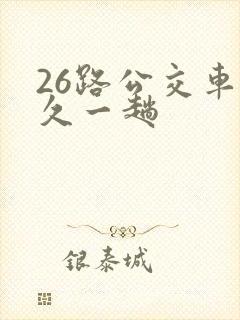 26路公交車
久一趟
银泰城